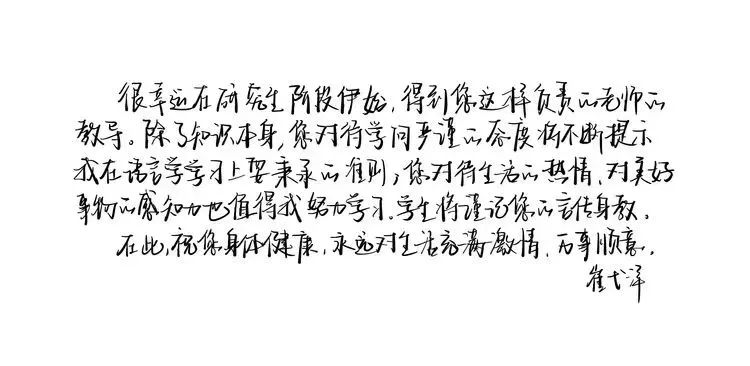 很幸运在研究生阶段伊始,得到您这样负责的老师的
教导。除了知识本身,您对待学问严谨的态度将不断提示
我在语言学学习上要秉承的准则;您对待生活的热情、对美好
事物的感知力也值得我努力学习。学生将谨记您的言传身教。
在此,祝您身体健康,永远对生活充满激情、万事顺意。
崔弋洋